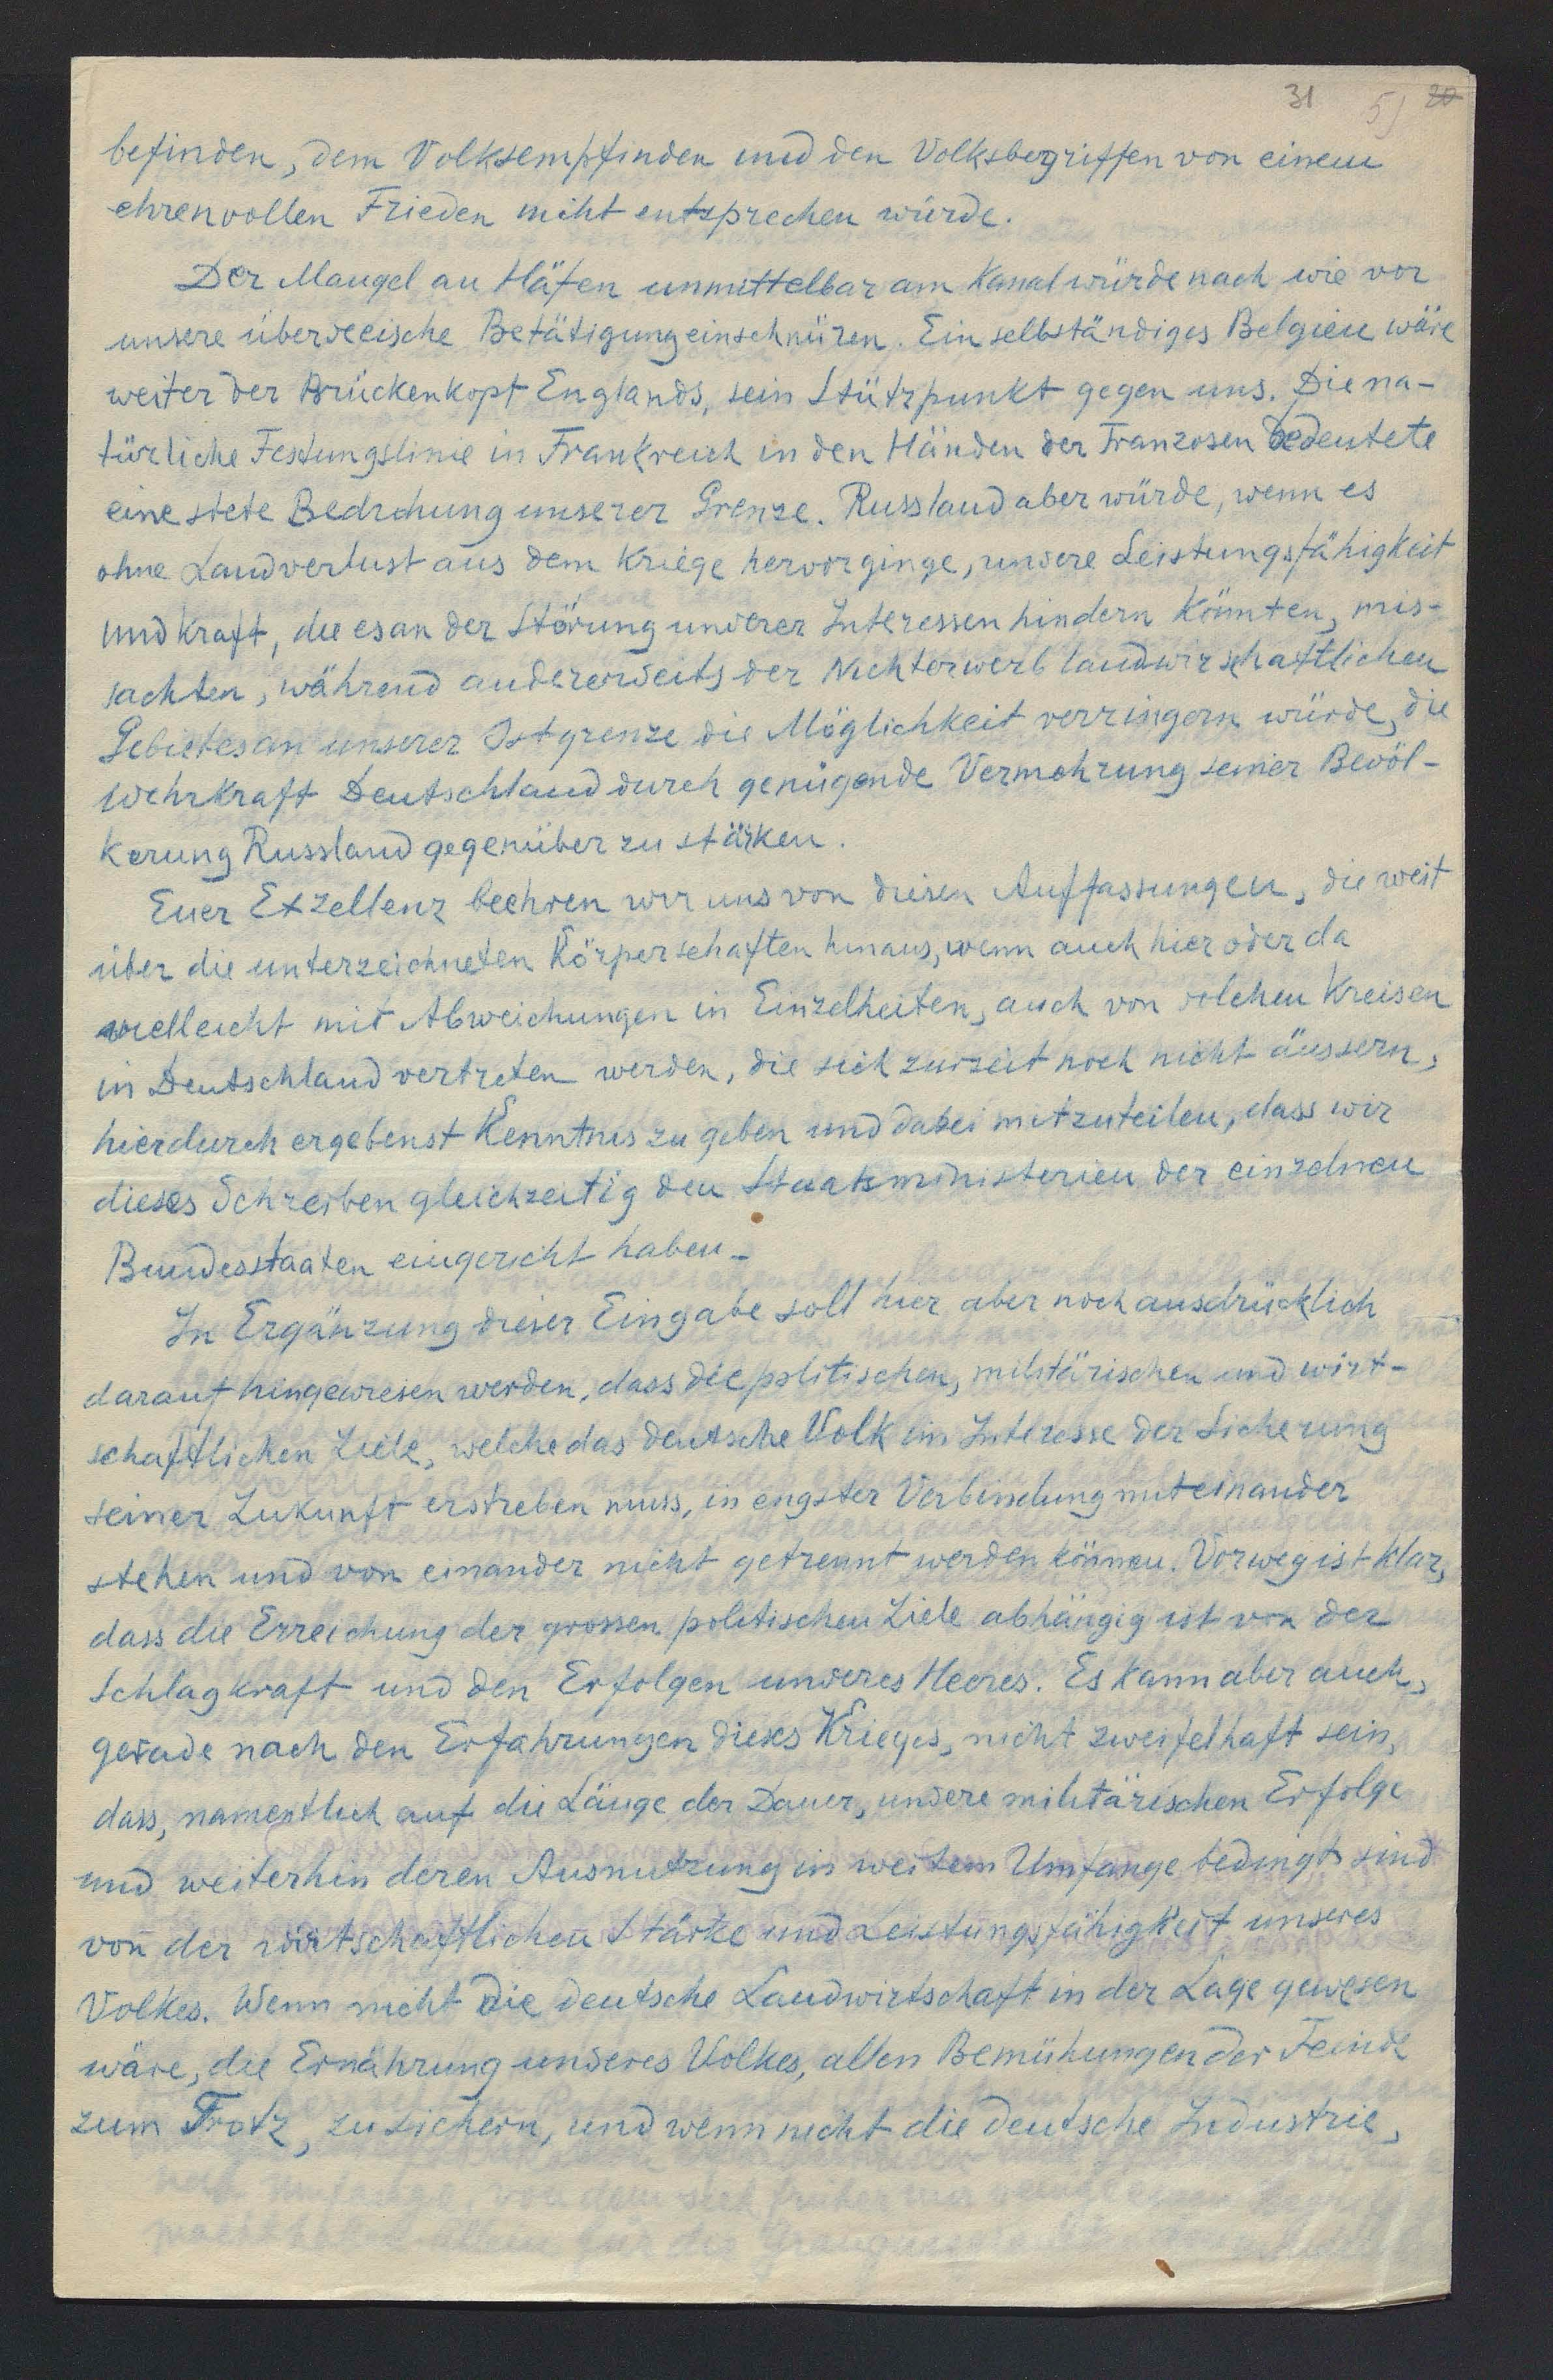 31 5) 20
befinden, dem Volksempfinden und den Volksbegriffen von einem
ehrenvollen Frieden nicht entsprechen würde.
Der Mangel an Häfen unmittelbar am Kanal würde nach wie vor
unsere überseeische Betätigung einschnüren. Ein selbständiges Belgien wäre
weiter der Brückenkopf Englands, sein Stützpunkt gegen uns. Die na-
türliche Festungslinie in Frankreich in den Händen der Franzosen bedeutete
eine stete Bedrohung unserer Grenze. Russland aber würde, wenn es
ohne Landverlust aus dem Kriege hervorginge, unsere Leistungsfähigkeit
und Kraft, die es an der Störung unserer Interessen hindern könnten, mis-
sachten, während andererseits der Nichterwerb landwirschaftlichen
Gebietes an unserer Ostgrenze die Möglichkeit verringern würde, die
Wehrkraft Deutschland durch genügende Vermehrung seiner Bevöl-
kerung Russland gegenüber zu stärken.
Euer Exzellenz beehren wir uns von diesen Auffassungen, die weit
über die unterzeichneten Körperschaften hinaus, wenn auch hier oder da
vielleicht mit Abweichungen in Einzelheiten, auch von solchen Kreisen
in Deutschland vertreten werden, die sich zurzeit noch nicht äussern,
hierdurch ergebenst Kenntnis zu geben und dabei mitzuteilen, dass wir
dieses Schreiben gleichzeitig den Staatsministerien der einzelnen
Bundesstaaten eingereicht haben.
In Ergänzung dieser Eingabe soll hier aber noch ausdrücklich
darauf hingewiesen werden, dass die politischen, militärischen und wirt-
schaftlichen Ziele, welche das deutsche Volk im Interesse der Sicherung
seiner Zukunft erstreben muss, in engster Verbindung miteinander
stehen und von einander nicht getrennt werden können. Vorweg ist klar,
dass die Erreichung der grossen politischen Ziele abhängig ist von der
Schlagkraft und den Erfolgen unseres Heeres. Es kann aber auch,
gerade nach den Erfahrungen dieses Krieges, nicht zweifelhaft sein,
dass, namentlich auf die Länge der Dauer, unsere militärischen Erfolge
und weiterhin deren Ausnutzung in weitem Umfange bedingt sind
von der wirtschaftlichen Stärke und Leistungsfähigkeit unseres
Volkes. Wenn nicht die deutsche Landwirtschaft in der Lage gewesen
wäre, die Ernährung unseres Volkes, allen Bemühungen der Feinde
zum Trotz, zu sichern, und wenn nicht die deutsche Industrie,